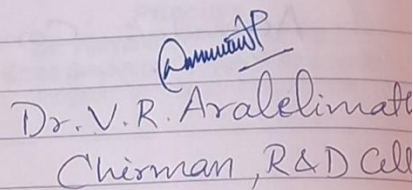 Dr. V. R. Aralelimath
Chirman, R&D Cell